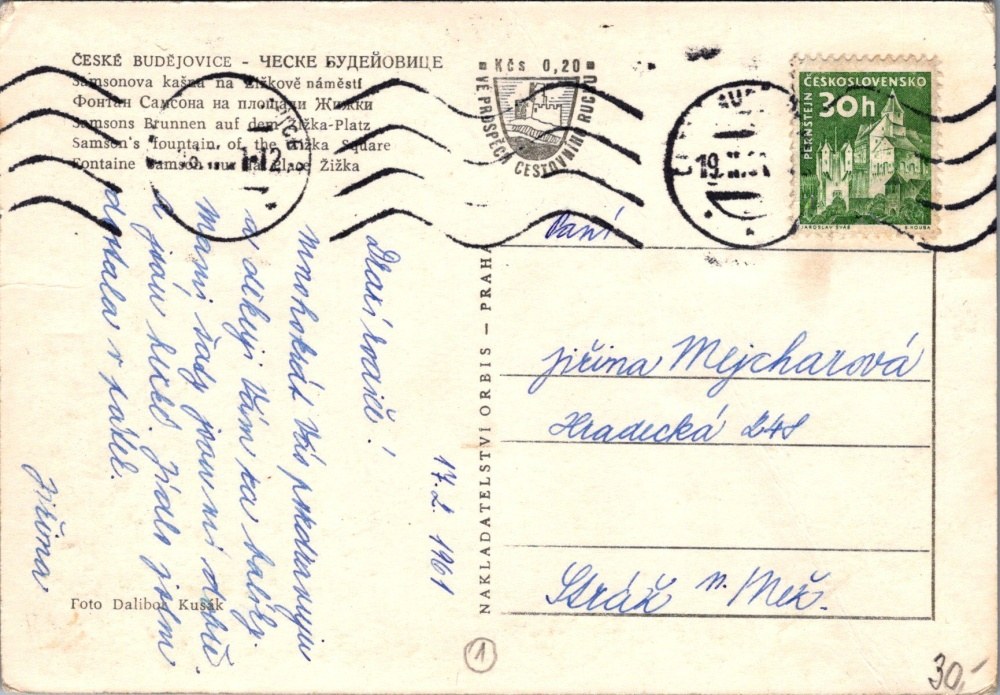 ČESKÉ BUDĚJOVICE - ЧЕСКЕ БУДЕЙОВИЦЕ
Samsonova kašna na Žižkově náměstí
Фонтан Самсона на площади Жижки
Samsons Brunnen auf dem Žižka-Platz
Samson's fountain of the Žižka Square
Fontaine Samson Place Žižka
Kčs 0,20
VE PROSPĚCH CESTOVNÍHO RUCHU
12
19. II.
ČESKOSLOVENSKO
30h
PERNŠTEJN
JAROSLAV ŠVÁB
Paní
Jiřina Mejcharová
Hradecká 248
Stráž n. Než.
NAKLADATELSTVÍ ORBIS — PRAHA
17.2. 1961
Drazí rodiče!
mnohokrát Vás pozdravuji
a děkuji Vám za balíky.
mami šaty jsou mi dobré
a jsou hezké. Jídlo jsem
dostala v
Jiřina
Foto Dalibor Kusák
1
30,-